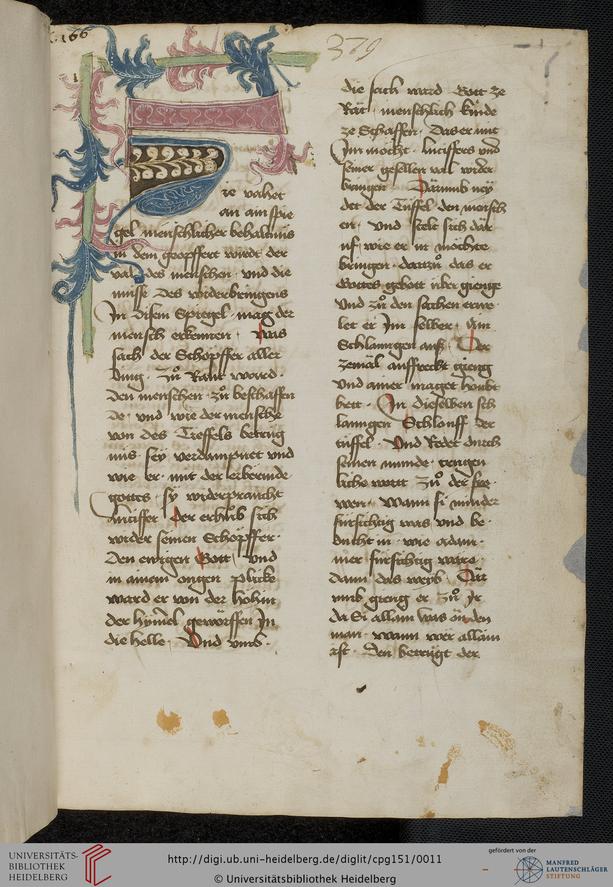 C. 166
379
1
ie vahet
an ain spie
gel menschlicher behaltnus
in dem geoffert wirdt der
val des menschen · vnd die
misse des widerbringens
In disem Spiegel · mag der
mensch erkennen · Was
sach der Schöpffer aller
ding · zů Raut ward ·
den menschen · zů beschaffen
de · vnd wie der mensche
von des Teffels betrug
nus sey verdampnet vnd
wie er · mit der erbermde
gottes · sy widerpraucht
Luciffer · der erhůb sich
wider seinen Schöpffer ·
den ewigen Gott · vnd
in ainem ougen plicke
ward er von der hohin
der hymel geworffen In
die helle · Vnd vmb ·
die sach ward Gott ze
Rat · menschlich kinde
ze Schaffen · Das er mit
Im möcht · luciffers vnd
seiner gesellen val wider
bringen · Darumb ney
det der Tüffel · den mensch
en · vnd stalt sich dar
uf · wie er in möchte
bringen · darzů das er
Gottes gebott über gienge
Vnd zů den sachen erwe
let er Im selber · Ain
Schlanngen auß · Der
zemäl auffreckt gieng
Vnd ainer maget houbt
hett · In dieselben sch
lanngen Schlouff der
tüffel · Vnd Redet durch
seinen munde · trengen
liche wort zů der fro
wen · Wann si minder
fürsichtig was vnd be ·
ducht in · wie adam ·
mer fürsichtig ware
dann das weyb · Dar
umb gieng er zů Ir
da Si allain was on den
man · wann wer allain
ist · den betrügt der
UNIVERSITÄTS-
BIBLIOTHEK
HEIDELBERG
http://digi.ub.uni-heidelberg.de/diglit/cpg151/0011
© Universitätsbibliothek Heidelberg
gefördert von der
MANFRED
LAUTENSCHLÄGER
STIFTUNG